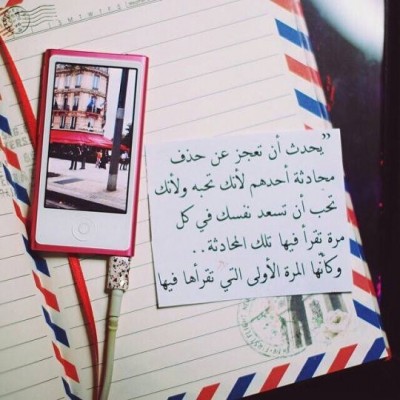 ”يحدث أن تعجز عن حذف
محادثة أحدهم لأنك تحبه ولأنك
تحب أن تسعد نفسك في كل
مرة تقرأ فيها تلك المحادثة..
وكأنها المرة الأولى التي تقرأها فيها